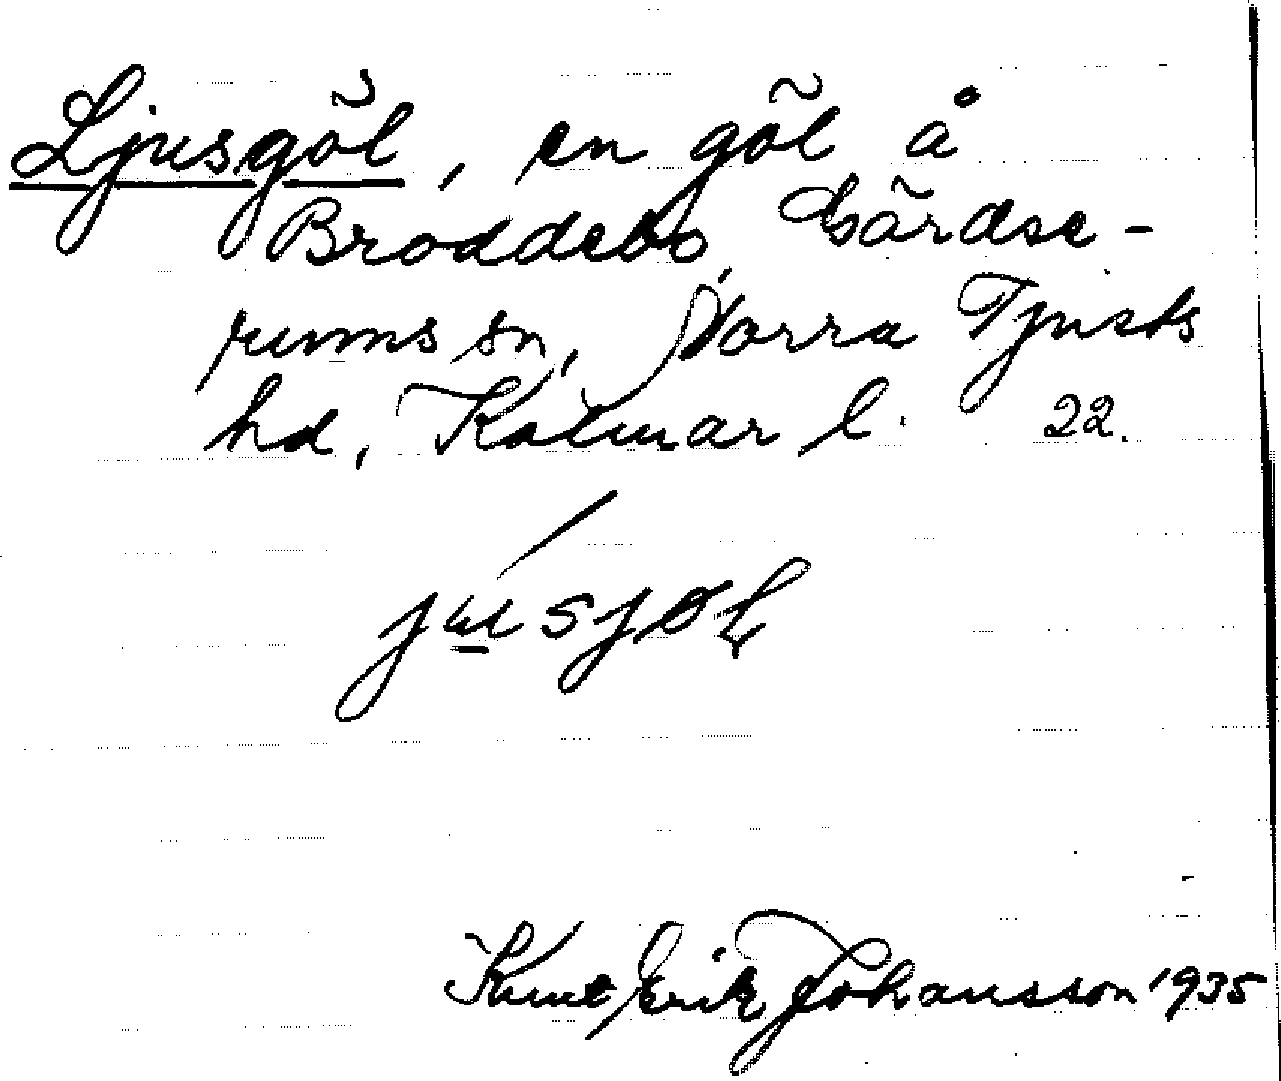 Ljusgöl, en göl å
Broddebo, Gärdse-
rums sn, Norra Tjusts
hd, Kalmar l. 22.
Knut Erik Johansson 1935